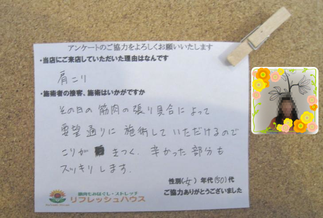 アンケートのご協力をよろしくお願いいたします
・当店にご来店していただいた理由はなんですか
肩こり
・施術者の接客、施術はいかがですか
その日の筋肉の張り具合によって
要望通りに施術していただけるので
こりがきつく、辛かった部分も
スッキリします。
性別(女) 年代(50)代
ご協力ありがとうございました
リフレッシュハウス